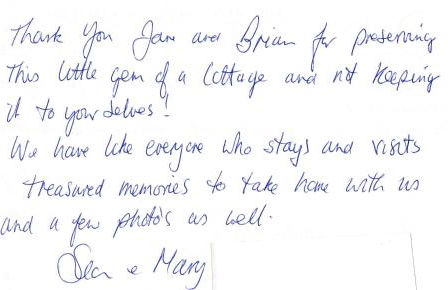 Thank You Jane and Brian for preserving
this little gem of a Cottage and not keeping
it to yourselves!
We have like everyone who stays and visits
treasured memories to take home with us
and a few photo's as well.
Sean & Mary